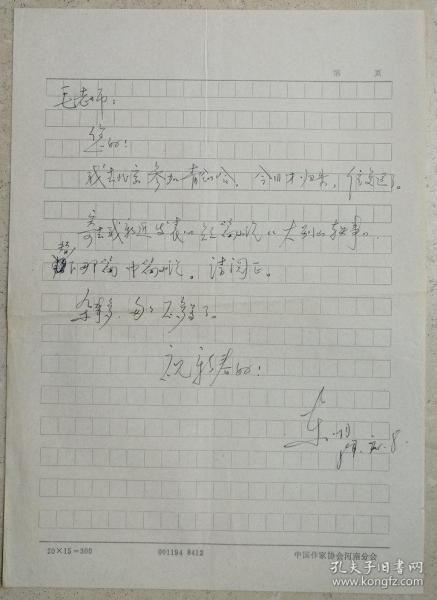 第 页
毛老师:
您好!
我去北京参加青创会,今日才归来,信复迟了。
寄去我新近发表的短篇小说《大别山轶事》
中篇小说。请阅正。
杂事多,匆匆不多写了。
祝新春好!
20×15=300 001194 8412 中国作家协会河南分会
孔夫子旧书网
www.kongfz.com